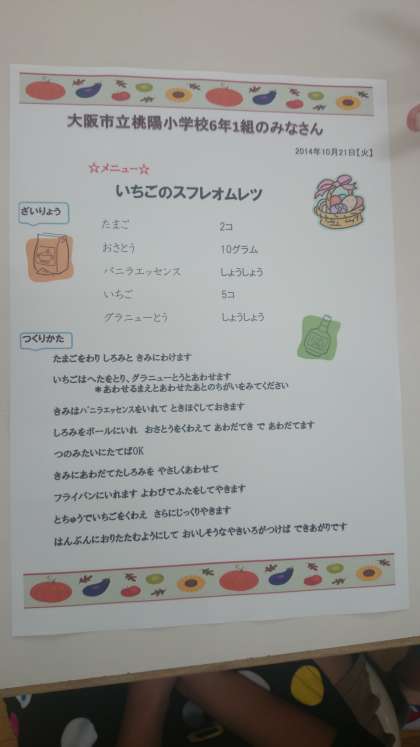 大阪市立桃陽小学校6年1組のみなさん
2014年10月21日【火】
☆メニュー☆
いちごのスフレオムレツ
ざいりょう
たまご 2コ
おさとう 10グラム
バニラエッセンス しょうしょう
いちご 5コ
グラニューとう しょうしょう
つくりかた
たまごをわり しろみと きみにわけます
いちごはへたをとり、グラニューとうとあわせます
＊あわせるまえとあわせたあとのちがいをみてください
きみはバニラエッセンスをいれて ときほぐしておきます
しろみをボールにいれ おさとうをくわえて あわだてき で あわだてます
つのみたいにたてばOK
きみにあわだてたしろみを やさしくあわせて
フライパンにいれます よわびでふたをしてやきます
とちゅうでいちごをくわえ さらにじっくりやきます
はんぶんにおりたたむようにして おいしそうなやきいろがつけば できあがりです